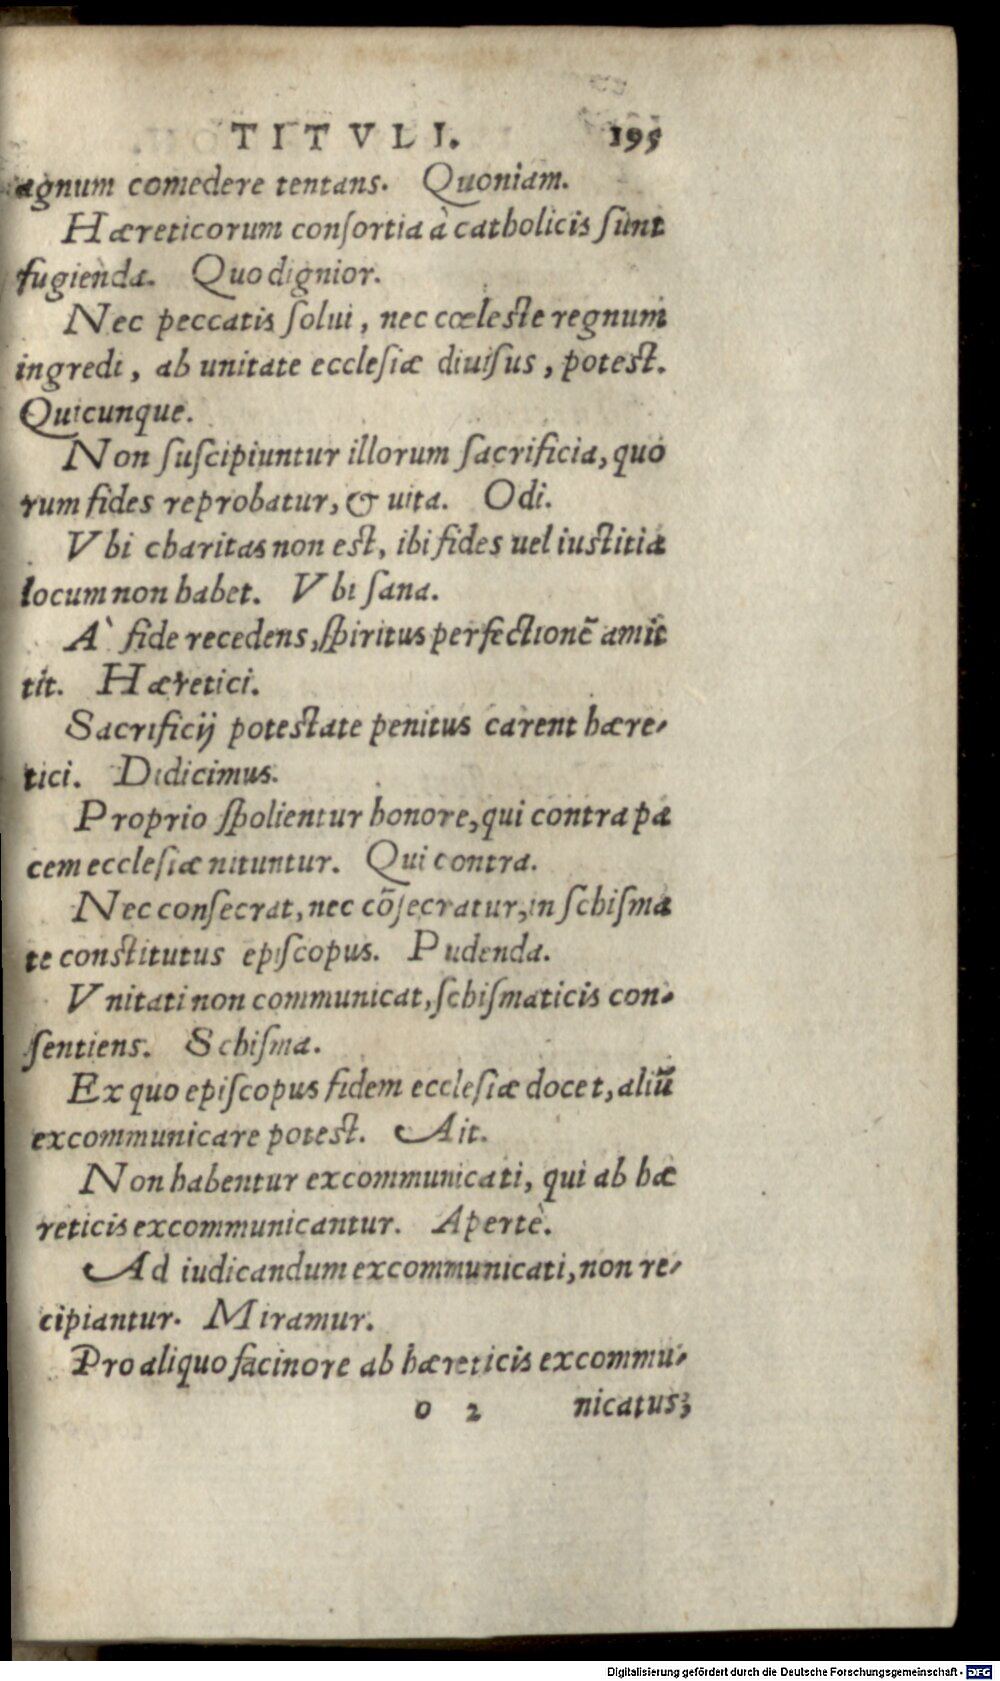 TITVLI. 195
agnum comedere tentans. Quoniam.
Hæreticorum conſortia à catholicis ſunt
fugienda. Quo dignior.
Nec peccatis ſolui, nec cœleſte regnum
ingredi, ab unitate eccleſiæ diuiſus, poteſt.
Quicunque.
Non ſuſcipiuntur illorum ſacrificia, quo
rum fides reprobatur, & uita. Odi.
Vbi charitas non eſt, ibi fides uel iuſtitia
locum non habet. Vbi ſana.
A` fide recedens, ſpiritus perfectionē amit
tit. Hæretici.
Sacrificij poteſtate penitus carent hære-
tici. Didicimus.
Proprio ſpolientur honore, qui contra pa
cem eccleſiæ nituntur. Qui contra.
Nec conſecrat, nec cōſecratur, in ſchiſma
te conſtitutus epiſcopus. Pudenda.
Vnitati non communicat, ſchiſmaticis con-
ſentiens. Schiſma.
Ex quo epiſcopus fidem eccleſiæ docet, aliū
excommunicare poteſt. Ait.
Non habentur excommunicati, qui ab hæ
reticis excommunicantur. Apertè.
Ad iudicandum excommunicati, non re-
cipiantur. Miramur.
Pro aliquo facinore ab hæreticis excommu-
o 2 nicatus;
Digitalisierung gefördert durch die Deutsche Forschungsgemeinschaft - DFG